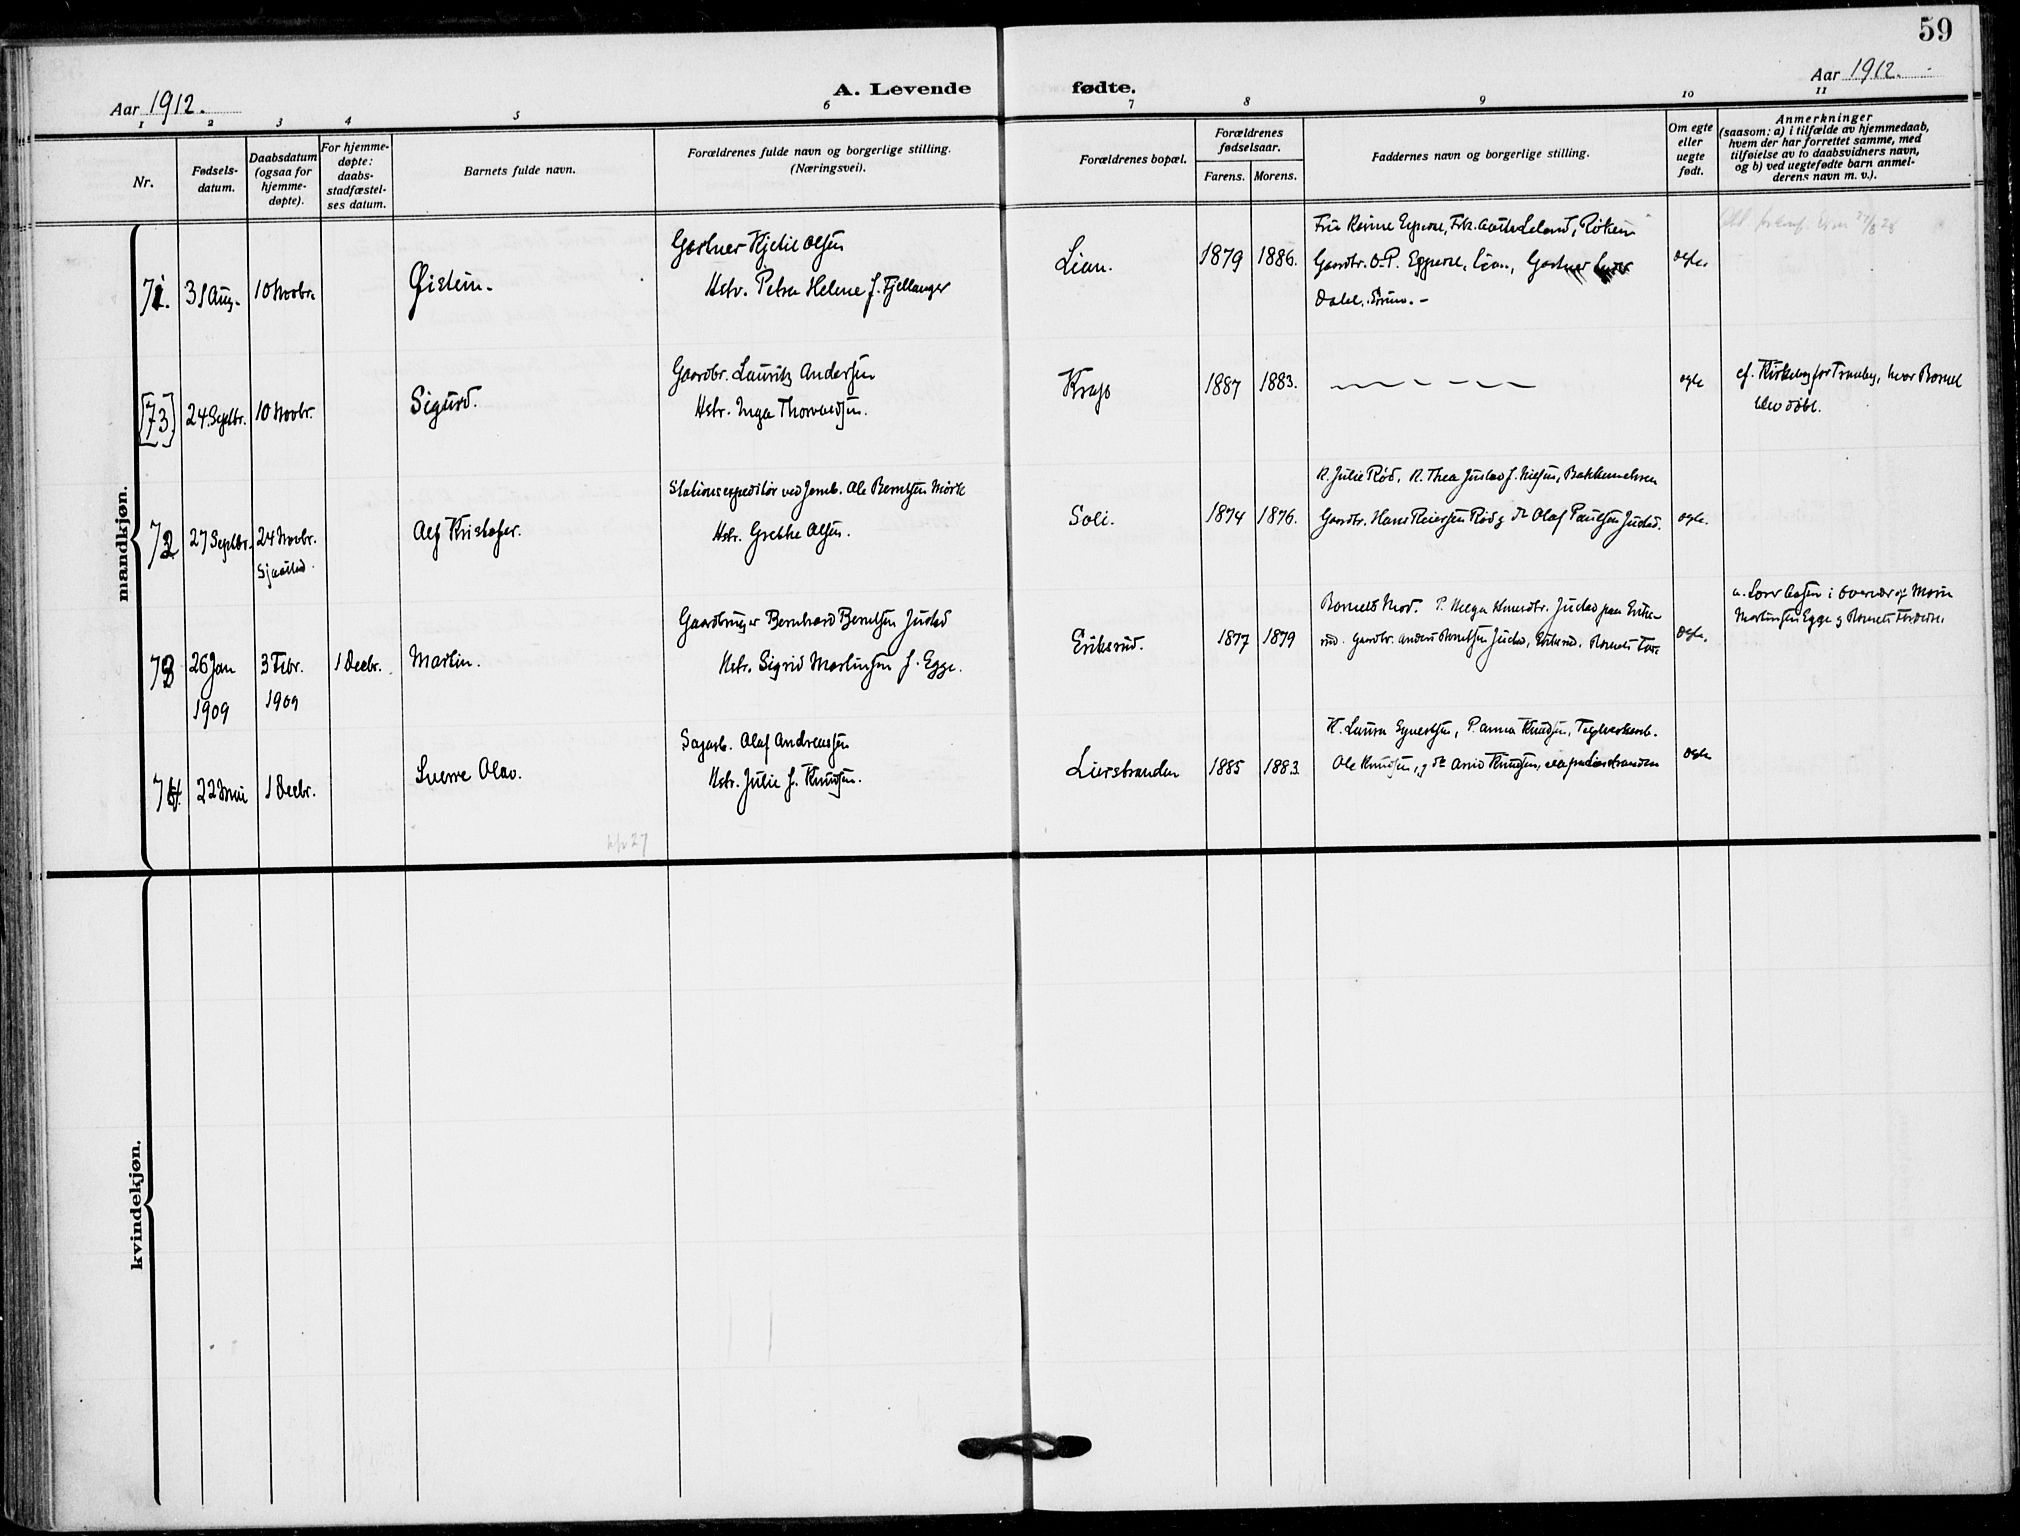 59
Aar 1912.
A. Levende fødte.
Aar 1912.
1 2 3 4 5 6 7 8 9 10 11
Nr.
Fødsels-
datum.
Daabsdatum
(ogsaa for
hjemme-
døpte).
For hjemme-
døpte:
daabs-
stadfæstel-
ses datum.
Barnets fulde navn.
Forældrenes fulde navn og borgerlige stilling.
(Næringsvei).
Forældrenes bopæl.
Forældrenes
fødselsaar.
Farens. Morens.
Faddernes navn og borgerlige stilling.
Om egte
eller
uegte
født.
Anmerkninger
(saasom: a) i tilfælde av hjemmedaab,
hvem der har forrettet samme, med
tilføielse av to daabsvidners navn,
og b) ved uegtefødte barn anmel-
derens navn m. v.).
mandkjøn.
71. 31 Aug. 10 Novbr. Øistein.
Gartner Kjetil Olsen
Hstr. Petra Helene f. Fjellanger
Lian. 1879 1886.
Gaardbr. O. P. Eggevol, Lian, Gartner
Dahl,
egte.
[73] 24 Septbr. 10 Novbr. Sigurd.
Gaardbr. Lauritz Andersen
Hstr. Inga Thorvaldsen.
1887 1883.
egte
cf. Kirkebog for Tranby, hvor Barnet
blev døbt.
72 27 Septbr. 24 Novbr.
Sjaastad.
Alf Kristofer.
Stationsexpeditør ved Jernb. Ole Berntsen Mørk
Hstr. Grethe Olsen.
Soli. 1874 1876.
K. Julie Rød, K. Thea Justad f. Nielsen,
Gaardbr. Hans Reiersen Rød og do Olaf Paulsen Justad.
egte.
73 26 Jan
1909
3 Febr.
1909
1 Decbr. Martin.
Gaardbruger Bernhard Berntsen Justad
Hstr. Sigrid Martinsen f. Egge.
Eriksrud. 1877 1879
Barnets Mod. P. Helga Justad paa Eriks-
rud. Gaardbr. Anders Berntsen Justad, Eriksrud. Barnets Far.
egte.
i Overvær af Maren
Martinsen Egge og Barnets Forældre.
74. 22 Mai 1 Decbr. Sverre Olav.
Sagarb. Olaf Andreassen
Hstr. Julie f. Knudsen.
Lierstranden 1885 1883.
K. Laura Syvertsen, P. Anna Knudsen, Teglverksarb.
Ole Knudsen, og do Arvid Knudsen, alle paa Lierstranden
egte
kvindekjøn.